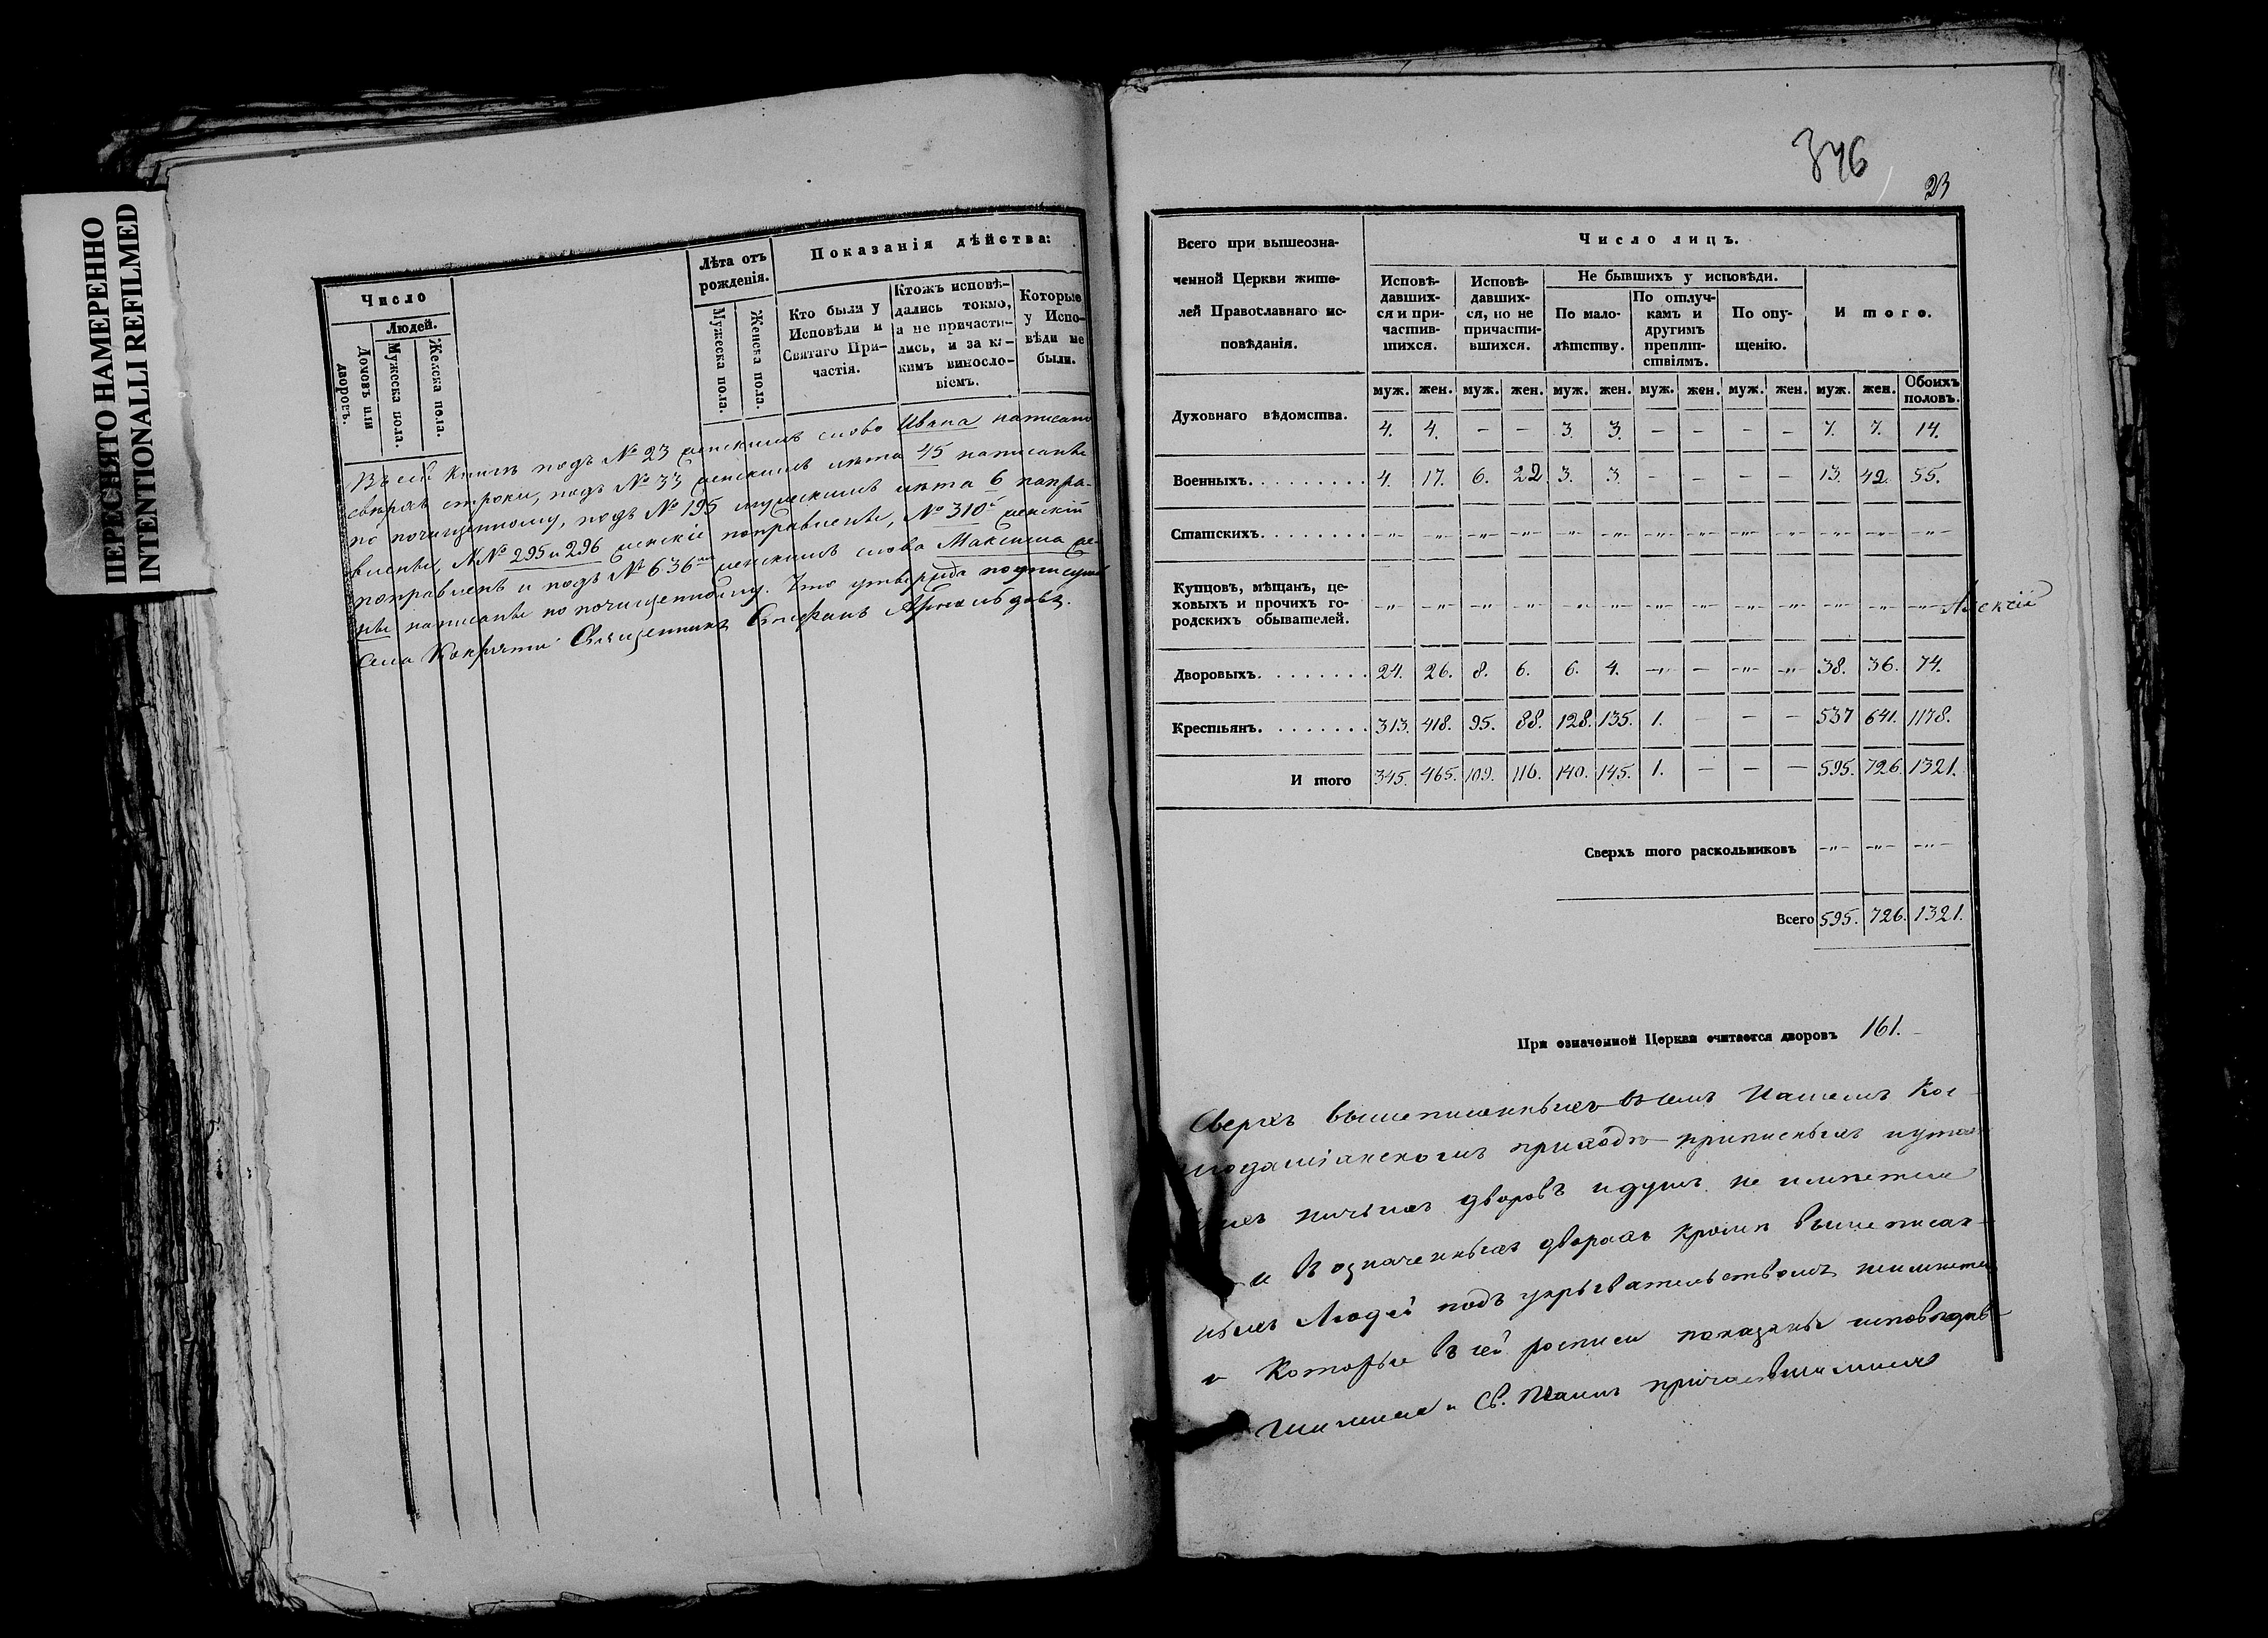 ПЕРЕСНЯТО НАМЕРЕННО
INTENTIONALLI REFILMED
Число
Людей.
Домовъ или дворовъ.
Мужеска пола.
Женска пола.
Лѣта отъ рожденія.
Мужеска пола.
Женска пола.
Показанія дѣйства:
Кто были у Исповѣди и Святаго Причастія.
Ктожъ исповѣдались токмо, а не причастились, и за какимъ винословіемъ.
Которые у Исповѣди не были.
Въ сей книгѣ подъ № 23 женскимъ слово Ивана написано
сверхъ строки, подъ № 33 женскимъ лѣта 45 написаны
по почищенному, подъ № 195 мужескимъ лѣта 6 поправ-
влены, №№ 295 и 296 женскіе поправлены, № 310й женскій
поправленъ и подъ № 636мъ женскимъ слова Максима же-
на написаны по почищенному. Что утверждая подписуюсь
Села Священникъ Стефанъ
376
23
Всего при вышеозна-
ченной Церкви жите-
лей Православнаго ис-
повѣданія.
Число лицъ.
Исповѣ-
давших-
ся и при-
частив-
шихся.
Исповѣ-
давших-
ся, но не
причасти-
вшихся.
Не бывшихъ у исповѣди.
По мало-
лѣтству.
По отлуч-
камъ и
другимъ
препят-
ствіямъ.
По опу-
щенію.
И того.
муж. жен. муж. жен. муж. жен. муж. жен. муж. жен. муж. жен. Обоихъ половъ.
Духовнаго вѣдомства. 4. 4. — — 3. 3. — — — — 7. 7. 14.
Военныхъ. 4. 17. 6. 22 3. 3. — — — — 13. 42. 55.
Статскихъ. -„- -„- -„- -„- -„- -„- -„- -„- -„- -„- -„- -„- -„-
Купцовъ, мѣщан, це-
ховыхъ и прочихъ го-
родскихъ обывателей. -„- -„- -„- -„- -„- -„- -„- -„- -„- -„- -„- -„- -„-
Алексѣй
Дворовыхъ. 24. 26. 8. 6. 6. 4. -„- — -„- -„- 38. 36. 74.
Крестьянъ. 313. 418. 95. 88. 128. 135. 1. — — — 537 641. 1178.
И того 345. 465. 109. 116. 140. 145. 1. — — — 595. 726. 1321.
Сверхъ того раскольниковъ -„- -„- -„-
Всего 595. 726. 1321.
При означенной Церкви считается дворовъ 161.
Сверхъ вышеписанныхъ въ семъ нашемъ Кос-
модаміанскомъ приходѣ приписныхъ и
ничьихъ дворовъ и душъ не имѣется
и в означенныхъ дворахъ кромѣ вышеписан-
ныхъ Людей подъ укрывательствомъ неимѣется
и Которые в сей росписи показаны исповѣдав-
шимися и Св. Таинъ причастившимися